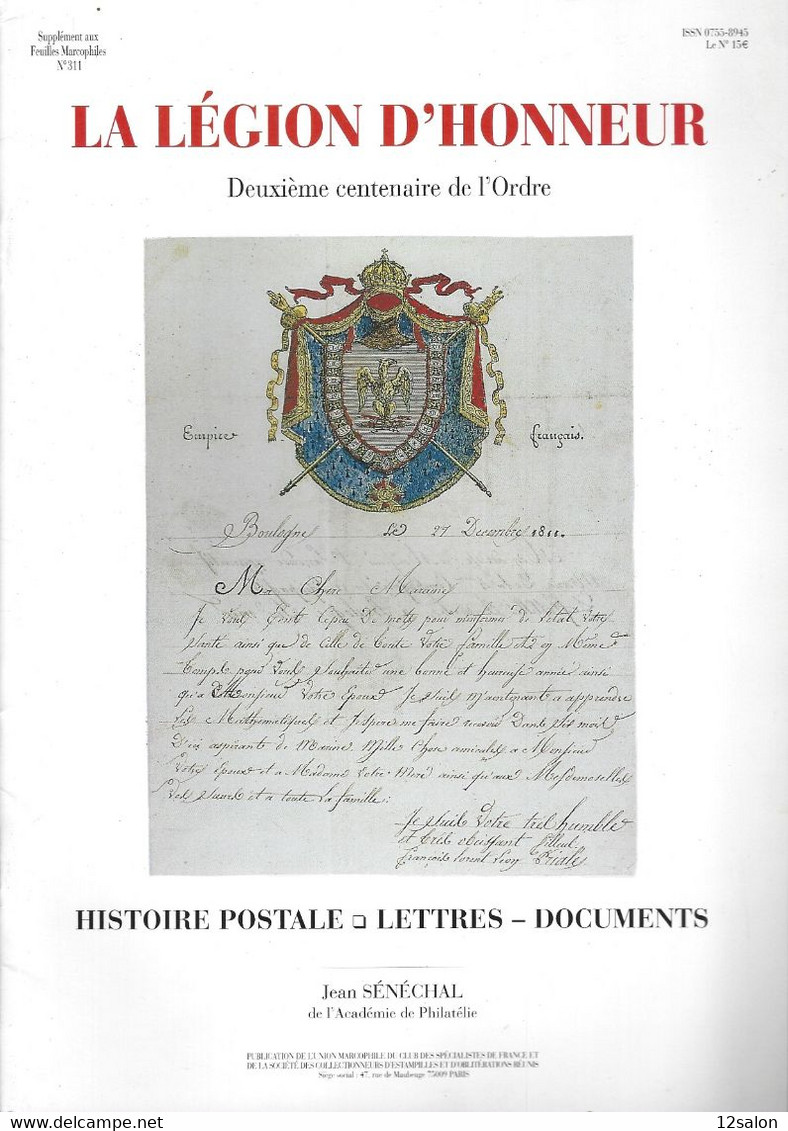 Supplément aux
Feuilles Marcophiles
N°311
ISSN 0755-8945
Le N° 15€
LA LÉGION D'HONNEUR
Deuxième centenaire de l'Ordre
Empire français.
Boulogne Le 27 Decembre 1811.
Ma Chere Maraine
Je vous Ecrit le peu De mots pour minformer de letat votre
Santé ainsi que de celle de toute votre famille et en Même
temps pour vous Souhaite une bonne et heureuse année ainsi
qu'a Monsieur votre Epoux Je suis maintenant a apprendre
Les Mathematiques et Jespere me faire recevoir Dans Six mois
D'ici aspirante de Marine Mille Chose amicales a Monsieur
Votre Epoux et a Madame votre Mere ainsi qu'aux Mesdemoselles
Vos Sœurs et a toute La famille :
Je suis Votre tres humble
et tres obeissant filleul
François
HISTOIRE POSTALE ❑ LETTRES – DOCUMENTS
Jean SÉNÉCHAL
de l'Académie de Philatélie
PUBLICATION DE L'UNION MARCOPHILE DU CLUB DES SPÉCIALISTES DE FRANCE ET
DE LA SOCIÉTÉ DES COLLECTIONNEURS D'ESTAMPILLES ET D'OBLITÉRATIONS RÉUNIS
Siège social : 47, rue de Maubeuge 75009 PARIS
12salon